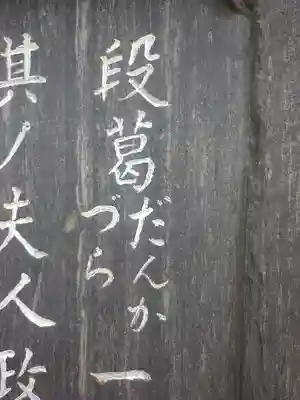 段葛だんかづら一
其ノ夫人政